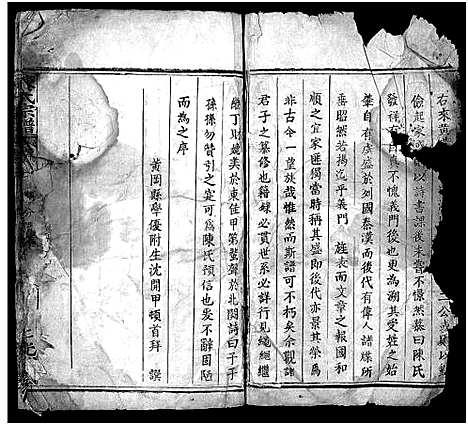 右來黃
二公步縣以
儉起家
以詩書課後未嘗不憬然慕曰陳氏
發祥有自真不愧義門後也更為溯其受姓之始
肇自有虞盛於列國秦漢而後代有偉人諸牒所
番昭然若揭迄乎義門 旌表而文章之報國和
順之宜家匪獨當時稱其盛即後代亦景其榮焉
非古今一望族哉惟然而斯譜可不朽矣余觀諸
君子之纂修也籍綠必貫世系必詳行見繩繩繼
繼丁財媲美於東佳甲第蜚聲於北闕詩曰子子
孫孫勿替引之寔可為陳氏預信也爰不辭固陋
而為之序
黃岡縣學優附生沈開甲頓首拜 譔
氏宗譜